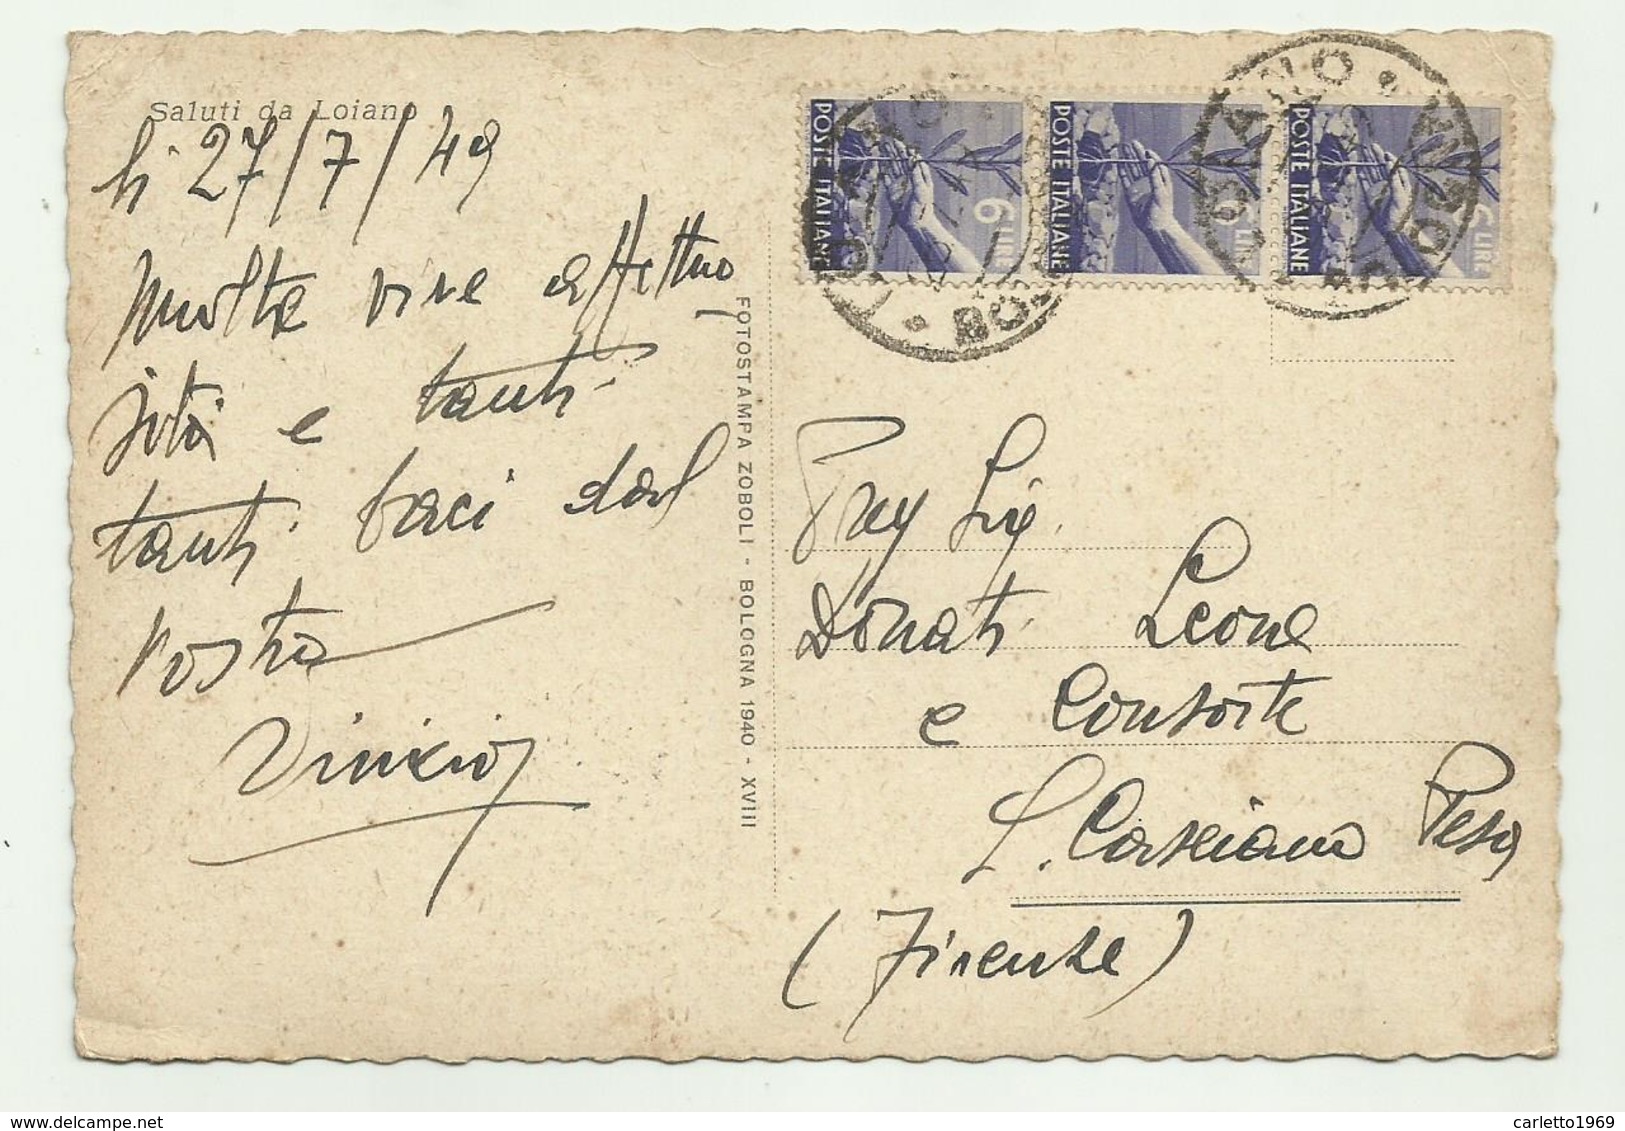 Saluti da Loiano
li 27/7/49
Molte vive affettuo
sità e tanti
tanti baci dal
vostro
Vinicio
FOTOSTAMPA ZOBOLI - BOLOGNA 1940 - XVIII
POSTE ITALIANE
6 LIRE
POSTE ITALIANE
6 LIRE
POSTE ITALIANE
6 LIRE
LOIANO
BOLOGNA
Preg Sig.
Donati Leone
e Consorte
S. Casciano Pesa
(Firenze)
carletto1969